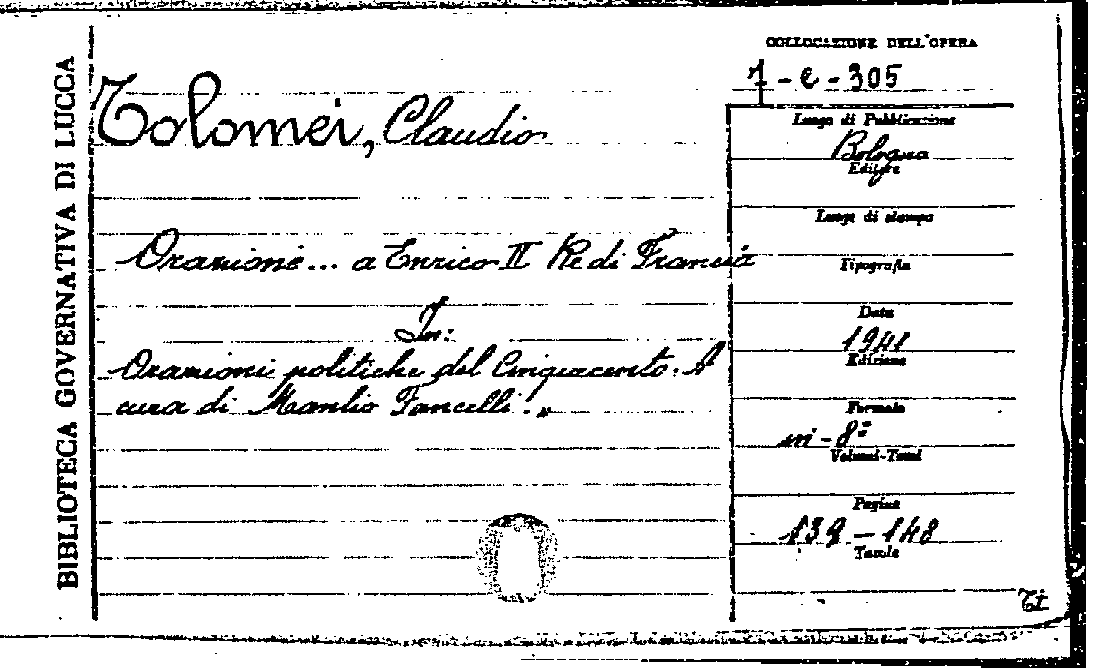 BIBLIOTECA GOVERNATIVA DI LUCCA
Tolomei, Claudio
Orazione... a Enrico II Re di Francia
In:
Orazioni politiche del Cinquecento. A
cura di Manlio Fancelli.,,
COLLOCAZIONE DELL'OPERA
7-e-305
Luogo di Pubblicazione
Bologna
Editore
Luogo di stampa
Tipografia
Data
1941
Edizione
Formato
in-8º
Volumi-Tomi
Pagine
139-148
Tavole